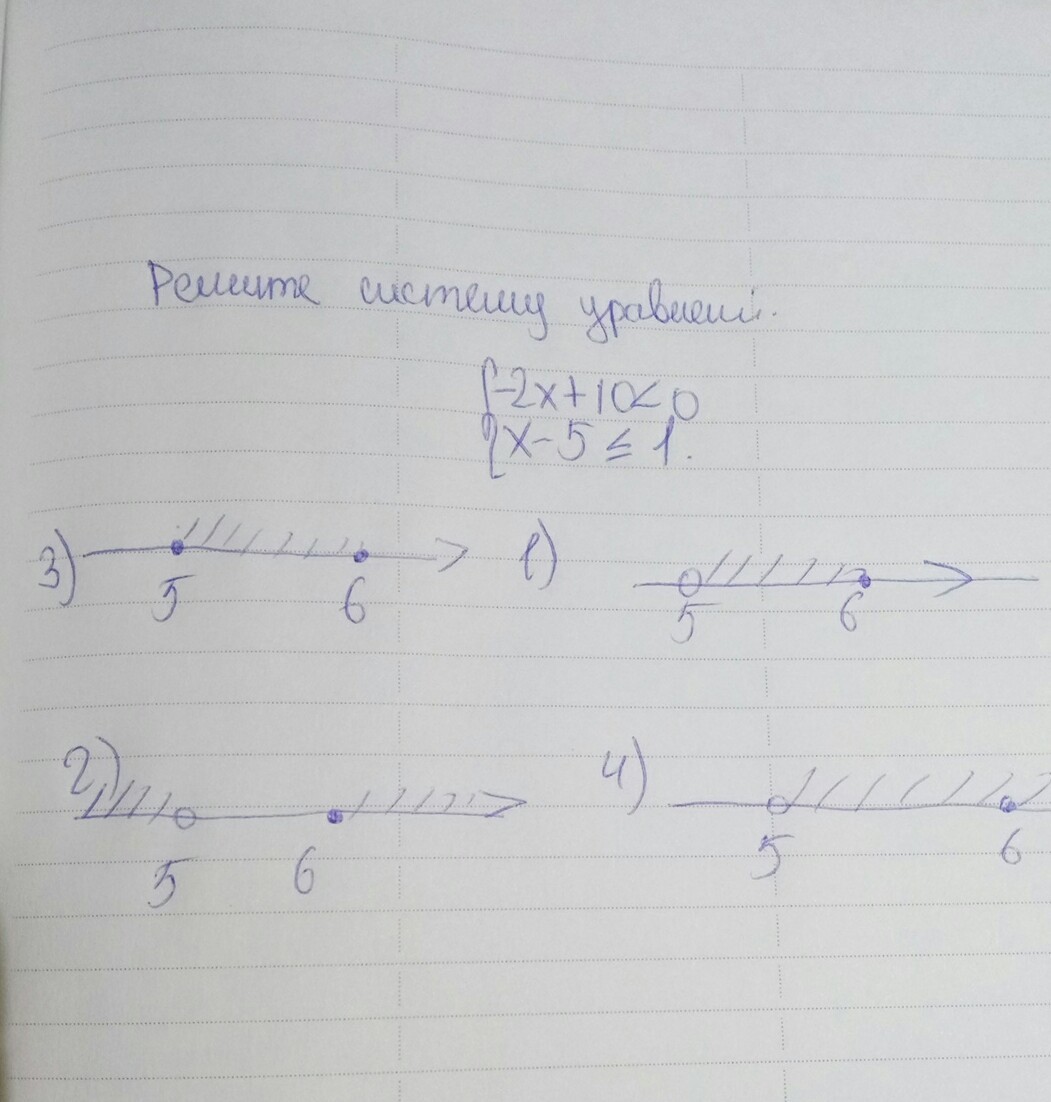 Решите систему уравнений.
{-2x+10<0
x-5≤1.
3) 5 6
1) 5 6
2) 5 6
4) 5 6